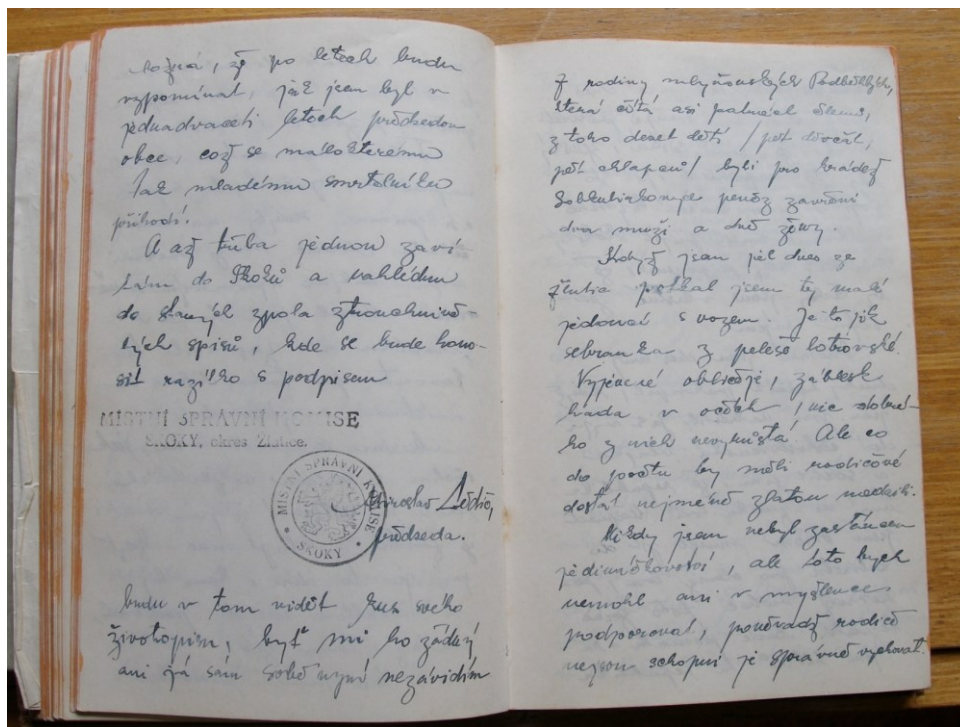 Možná, že po letech budu
vzpomínat, jak jsem byl v
jednadvaceti letech předsedou
obce, což se málokterému
tak mladému smrtelníku
přihodí.
A až třeba jednou zaví-
tám do Skoků a nahlédnu
do starých zpola ztrouchnivě-
lých spisů, kde se bude hono-
sit razítko s podpisem
MÍSTNÍ SPRÁVNÍ KOMISE
SKOKY, okres Žlutice.
MÍSTNÍ SPRÁVNÍ KOMISE
SKOKY
Miroslav
předseda.
budu v tom vidět kus svého
životopisu, byť mi ho žádný
ani já sám sobě nyní nezávidím
Z rodiny
která čítá asi patnáct členů,
z toho deset dětí / pět děvčat,
pět chlapců / byli pro krádež
peněz zavřeni
dva muži a dvě ženy.
Když jsem jel dnes ze
Žlutic potkal jsem ty malé
jedoucí s vozem. Je to jak
sebranka z peleše lotrovské.
Vyjevené obličeje, záblesk
hada v očích / nic dobré-
ho z nich nevyrůstá! Ale co
do počtu by měli rodičové
dostat nejméně zlatou medaili.
Nikdy jsem nebyl zastáncem
jedináčkovství, ale toto bych
nemohl ani v myšlence
podporovat, poněvadž rodiče
nejsou schopni je správně vychovat.